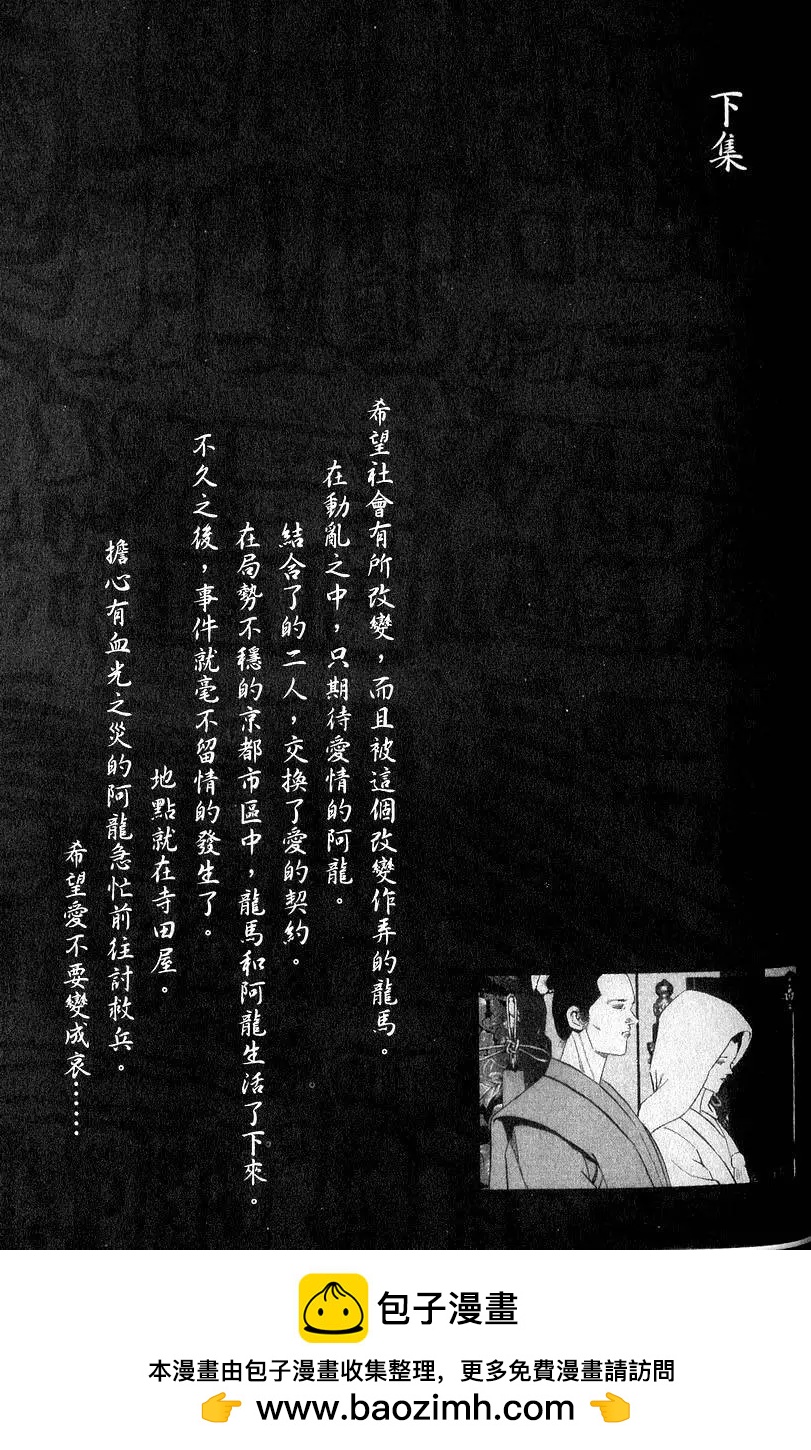 下集
希望社會有所改變，而且被這個改變作弄的龍馬。
在動亂之中，只期待愛情的阿龍。
結合了的二人，交換了愛的契約。
在局勢不穩的京都市區中，龍馬和阿龍生活了下來。
不久之後，事件就毫不留情的發生了。
地點就在寺田屋。
擔心有血光之災的阿龍急忙前往討救兵。
希望愛不要變成哀……
包子漫畫
本漫畫由包子漫畫收集整理，更多免費漫畫請訪問
👉 www.baozimh.com 👈